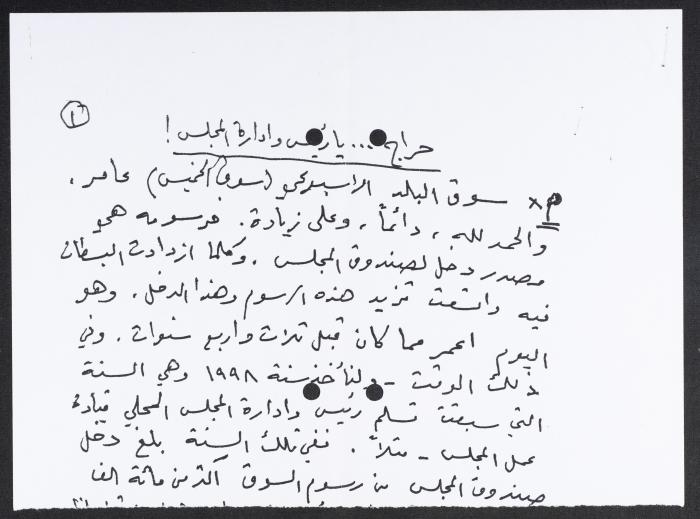 ١
حرام... يا رئيس وادارة المجلس !
* سوق البلد الاسبوعي (سوق الخميس) عامر ،
والحمد لله ، دائماً ، وعلى زيادة . فرسومه هي
مصدر دخل لصندوق المجلس . وكلما ازدادت البسطات
فيه واتسعت تزيد هذه الرسوم وهذا الدخل . وهو
اليوم اعمر مما كان قبل ثلاث واربع سنوات . وفي
ذلك الوقت - ولنأخذ سنة ١٩٩٨ وهي السنة
التي سبقت تسلم رئيس وادارة المجلس المحلي قيادة
عمل المجلس - مثلاً . ففي تلك السنة بلغ دخل
صندوق المجلس من رسوم السوق اكثر من مائة الف